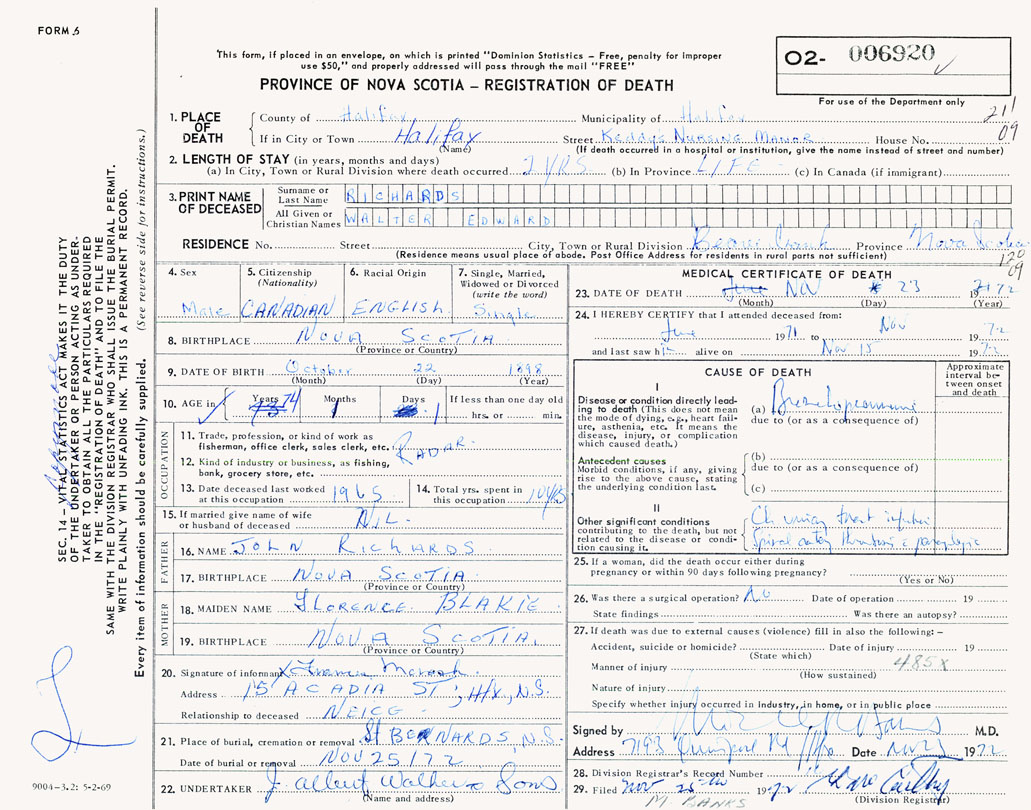 FORM 6
This form, if placed in an envelope, on which is printed "Dominion Statistics – Free, penalty for improper
use $50," and properly addressed will pass through the mail "FREE"
PROVINCE OF NOVA SCOTIA – REGISTRATION OF DEATH
O2- 006920
For use of the Department only
211
09
1. PLACE OF DEATH
County of Halifax Municipality of Halifax
If in City or Town Halifax Street Keddy's Nursing Manor House No.
(Name) (If death occurred in a hospital or institution, give the name instead of street and number)
2. LENGTH OF STAY (in years, months and days)
(a) In City, Town or Rural Division where death occurred 2 YRS (b) In Province LIFE (c) In Canada (if immigrant)
3. PRINT NAME OF DECEASED
Surname or Last Name RICHARDS
All Given or Christian Names WALTER EDWARD
RESIDENCE No. Street City, Town or Rural Division Beaver Bank Province Nova Scotia
(Residence means usual place of abode. Post Office Address for residents in rural parts not sufficient)
120
09
4. Sex
Male
5. Citizenship
(Nationality)
CANADIAN
6. Racial Origin
ENGLISH
7. Single, Married,
Widowed or Divorced
(write the word)
Single
8. BIRTHPLACE NOVA SCOTIA
(Province or Country)
9. DATE OF BIRTH October 22 1898
(Month) (Day) (Year)
10. AGE Years 74 Months 1 Days 1 If less than one day old
hrs. or min.
OCCUPATION
11. Trade, profession, or kind of work as
fisherman, office clerk, sales clerk, etc. RADAR
12. Kind of industry or business, as fishing,
bank, grocery store, etc.
13. Date deceased last worked
at this occupation 1965
14. Total yrs. spent in
this occupation 10 YRS
15. If married give name of wife
or husband of deceased NIL
FATHER
16. NAME JOHN RICHARDS
17. BIRTHPLACE NOVA SCOTIA
(Province or Country)
MOTHER
18. MAIDEN NAME FLORENCE BLAKIE
19. BIRTHPLACE NOVA SCOTIA.
(Province or Country)
20. Signature of informant X
Address 15 ACADIA ST; Hfx, N.S.
Relationship to deceased NEICE
21. Place of burial, cremation or removal St BERNARDS, N.S.
Date of burial or removal NOV 25/72
22. UNDERTAKER J. Albert Walker & Sons
(Name and address)
MEDICAL CERTIFICATE OF DEATH
23. DATE OF DEATH June Nov 23 1972
(Month) (Day) (Year)
24. I HEREBY CERTIFY that I attended deceased from:
June 1971 to Nov 1972
and last saw him alive on Nov 15 1972
CAUSE OF DEATH
Approximate
interval be-
tween onset
and death
I
Disease or condition directly lead-
ing to death (This does not mean
the mode of dying, e.g., heart fail-
ure, asthenia, etc. It means the
disease, injury, or complication
which caused death.)
(a) Bronchopneumonia
due to (or as a consequence of)
Antecedent causes
Morbid conditions, if any, giving
rise to the above cause, stating
the underlying condition last.
(b)
due to (or as a consequence of)
(c)
II
Other significant conditions
contributing to the death, but not
related to the disease or condi-
tion causing it.
Ch urinary tract infection
Spinal artery thrombosis c paraplegia
25. If a woman, did the death occur either during
pregnancy or within 90 days following pregnancy?
(Yes or No)
26. Was there a surgical operation? No Date of operation 19
State findings Was there an autopsy?
27. If death was due to external causes (violence) fill in also the following: –
Accident, suicide or homicide? Date of injury 19
(State which)
Manner of injury 485X
(How sustained)
Nature of injury
Specify whether injury occurred in industry, in home, or in public place
Signed by M.D.
Address Date Nov 23 1972
28. Division Registrar's Record Number
29. Filed Nov 25th 1972
(Division Registrar)
M BANKS
SEC. 14 – VITAL STATISTICS ACT MAKES IT THE DUTY
OF THE UNDERTAKER OR PERSON ACTING AS UNDER-
TAKER TO OBTAIN ALL THE PARTICULARS REQUIRED
IN THE "REGISTRATION OF DEATH" AND TO FILE THE
SAME WITH THE DIVISION REGISTRAR WHO SHALL ISSUE THE BURIAL PERMIT.
WRITE PLAINLY WITH UNFADING INK. THIS IS A PERMANENT RECORD.
Every item of information should be carefully supplied. (See reverse side for instructions.)
9004-3.2: 5-2-69